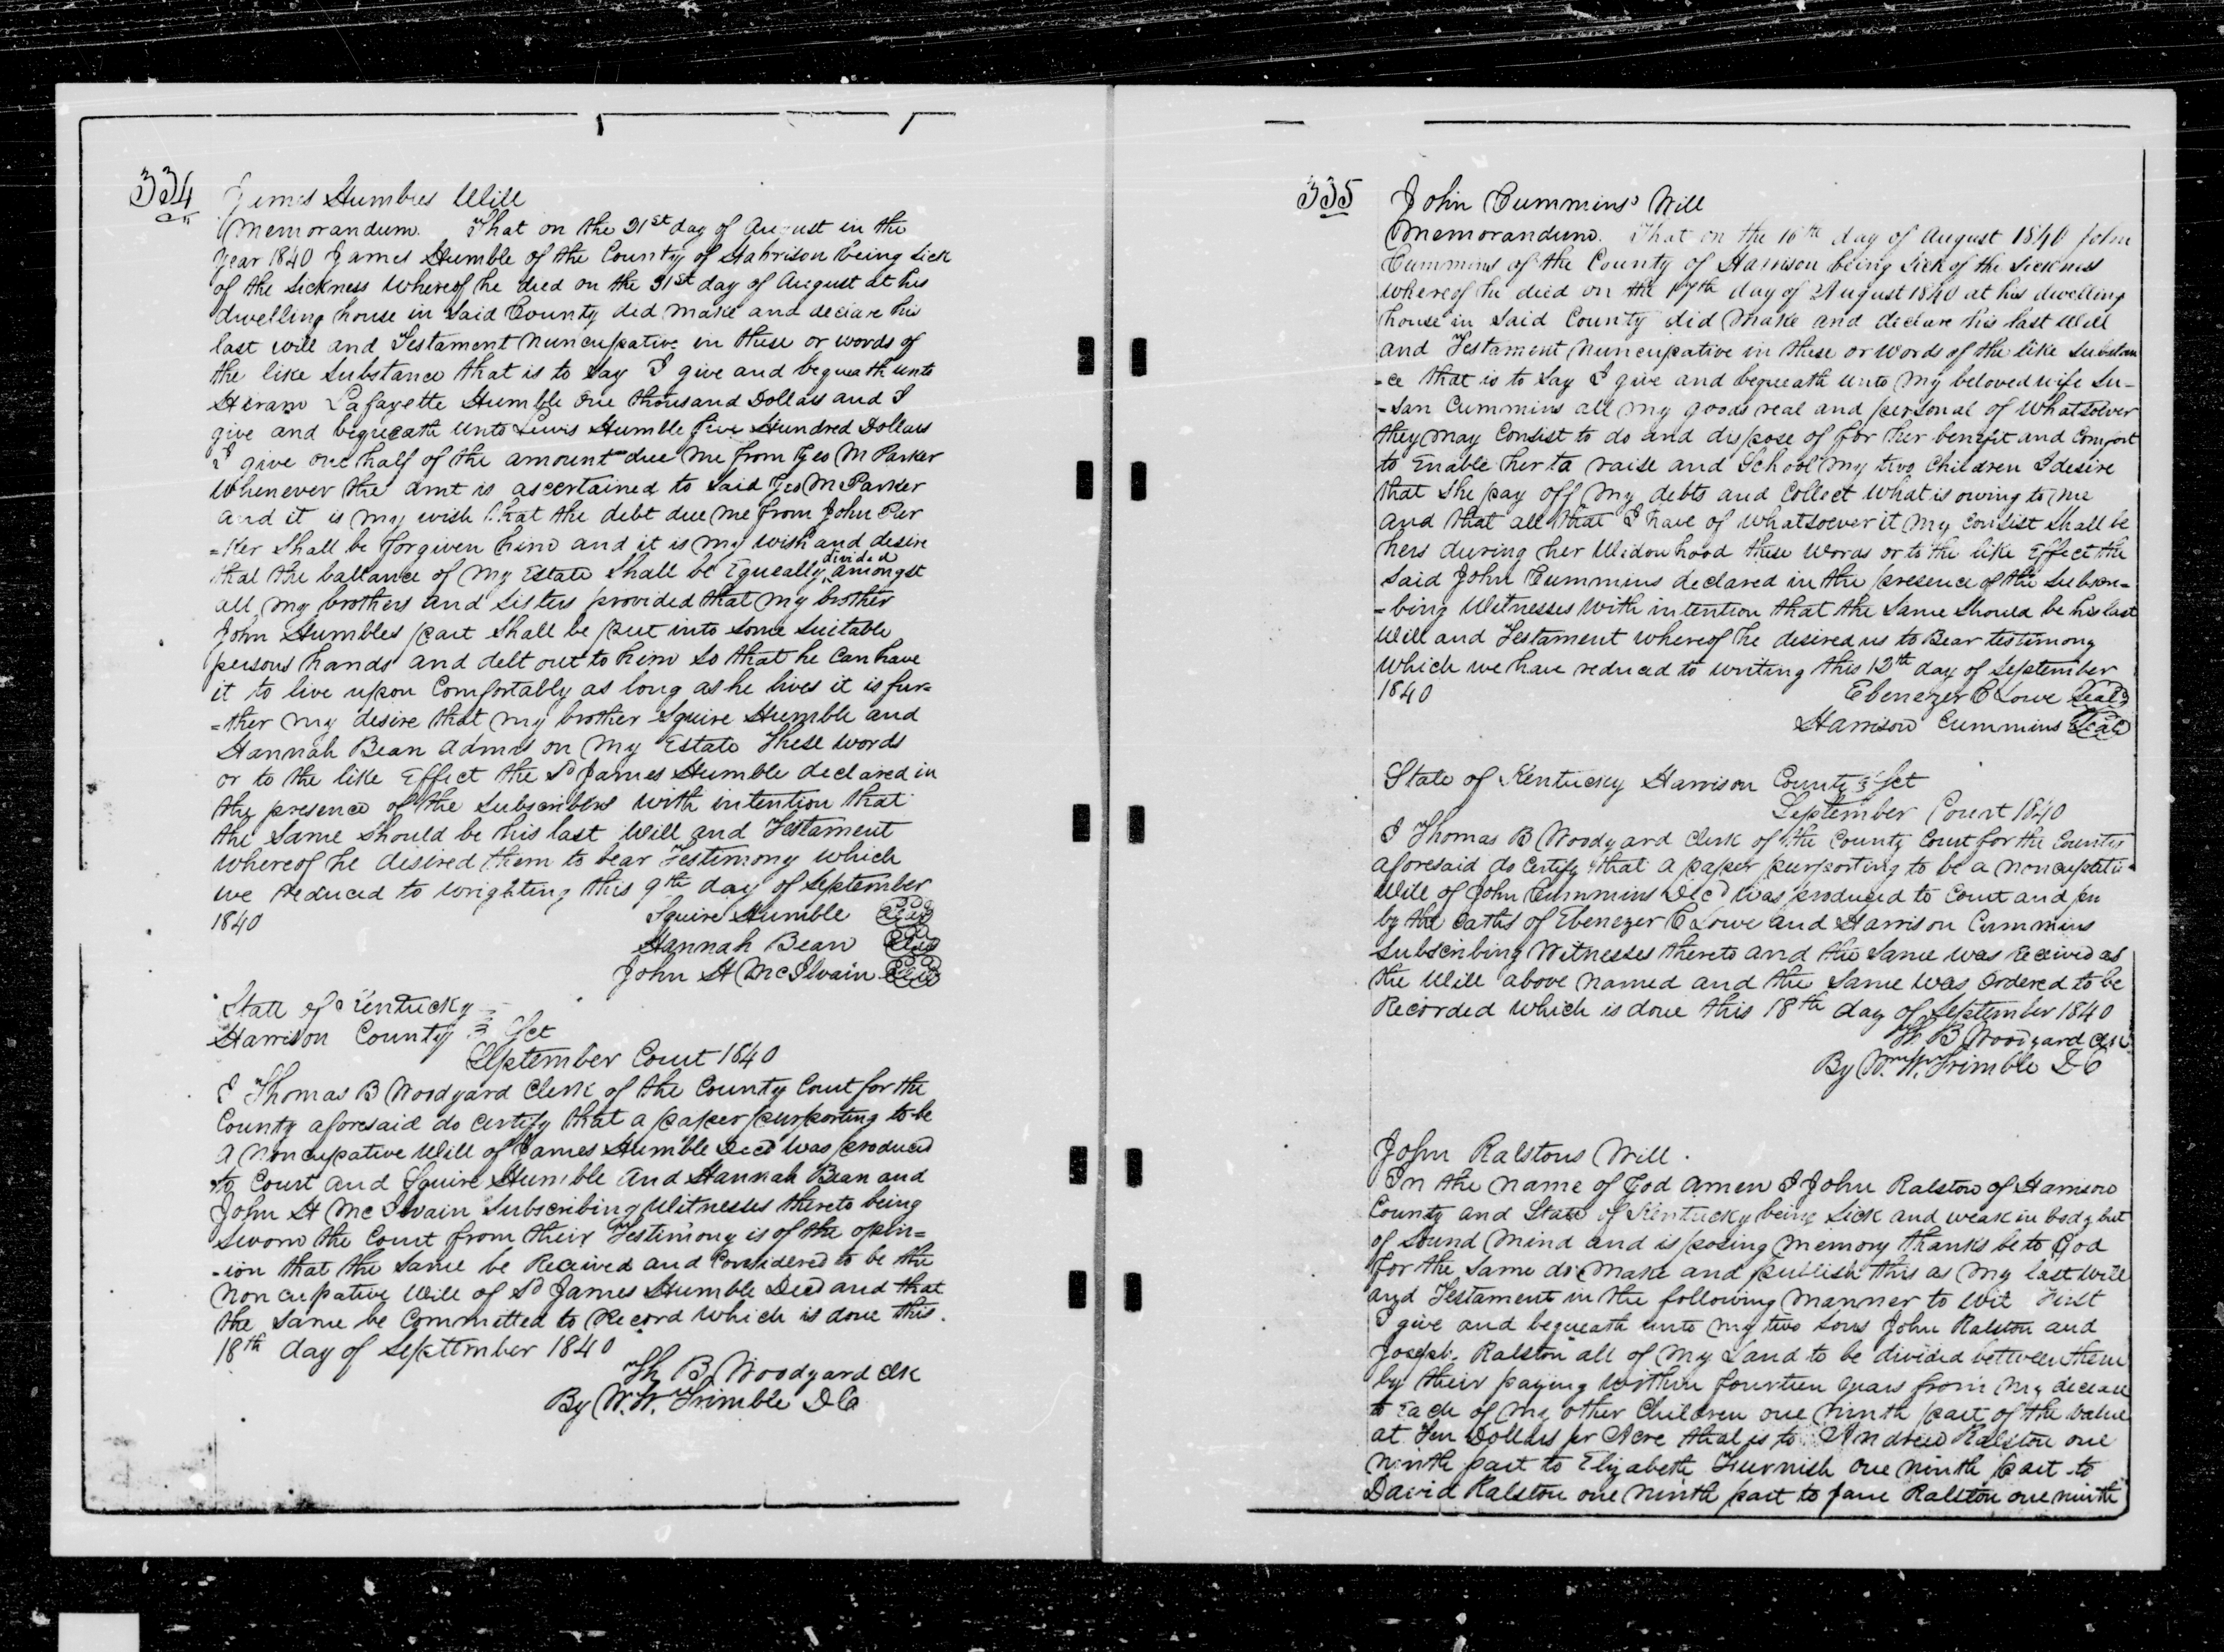 334
James Humbles Will
Memorandum. That on the 21st day of August in the
Year 1840 James Humble of the County of Hahrison being Sick
of the Sickness Whereof he died on the 31st day of August at his
dwelling house in Said County did Make and declare his
last will and Testament Nuncupative in these or words of
the like Substance that is to Say I give and bequeath unto
Hiram Lafayette Humble One thousand Dollars and I
give and bequeath unto Lewis Humble five Hundred Dollars
I give one half of the amount due me from Geo M Parker
Whenever the amt is ascertained to Said Geo M Parker
and it is my wish that the debt due me from John Par
=ker Shall be forgiven him and it is my wish and desire
divided
that the ballance of My Estate Shall be Equeally amongst
all my brothers and Sisters provided that my brother
John Humbles part Shall be put into Some Suitable
persons hands and delt out to him So that he Can have
it to live upon Comfortably as long as he lives it is fur=
=ther my desire that my brother Squire Humble and
Hannah Bean Admrs on My Estate These words
or to the like Effect the Sd James Humble declared in
the presence of the Subscribers with intention that
the Same Should be his last Will and Testament
Whereof he desired them to bear Testimony which
we reduced to wrighting this 9th day of September
1840 Squire Humble Seal
Hannah Bean Seal
John H McIlvain Seal
State of Kentucky
Harrison County Sct
September Court 1840
I Thomas B Woodyard Clerk of the County Court for the
County aforesaid do Certify that a paper purporting to be
a Noncupative Will of James Humble Decd was produced
to Court and Squire Humble and Hannah Bean and
John H McIlvain Subscribing Witnesses thereto being
Sworn the Court from their Testimony is of the opin=
-ion that the Same be Received and Considered to be the
Noncupative Will of Sd James Humble Decd and that
the Same be Committed to Record which is done this.
18th day of Septtember 1840
Th B Woodyard Clk
By W. W. Trimble D C
335
John Cummins' Will
Memorandum. That on the 16th day of August 1840 John
Cummins of the County of Harrison being Sick of the Sickness
whereof he died on the 17th day of August 1840 at his dwelling
house in Said County did Make and declare his last Will
and Testament Nuncupative in these or words of the like Substan
-ce that is to Say I give and bequeath unto My beloved wife Su-
-san Cummins all my goods real and personal of Whatsoever
they may Consist to do and dispose of for her benefit and Comfort
to Enable her to raise and School my two Children I desire
that She pay off My debts and Collect What is owing to me
and that all that I have of whatsoever it my Consist Shall be
hers during her Widowhood these Words or to the like Effect the
Said John Cummins declared in the presence of the Subscri=
=bing Witnesses With intention that the Same Should be his last
Will and Testament whereof he desired us to Bear testimony
Which we have reduced to writing this 12th day of September
1840 Ebenezer C Lowe Seal
Harrison Cummins Seal
State of Kentucky Harrison County Sct
September Court 1840
I Thomas B Woodyard Clerk of the County Court for the County
aforesaid do Certify that a paper purporting to be a noncupativ
Will of John Cummins Decd was produced to Court and
by the oaths of Ebenezer C Lowe and Harrison Cummins
Subscribing Witnesses thereto and the Same was Received as
the Will above named and the Same was ordered to be
Recorded which is done this 18th day of September 1840
Th B Woodyard Clk
By W. W. Trimble D C
John Ralstons Will.
In the name of God Amen I John Ralston of Harrison
County and State of Kentucky being Sick and weak in body but
of Sound Mind and is posing Memory thanks be to God
for the Same do Make and publish this as My last Will
and Testament in the following Manner to Wit First
I give and bequeath unto my two Sons John Ralston and
Joseph Ralston all of My Land to be divided bettween them
by their paying within fourteen years from my decease
to Each of my other Children one ninth part of the Value
at Ten Dollars pr Acre that is to Andrew Ralston one
Ninth part to Elizabeth Furnish one Ninth part to
David Ralston one Ninth part to Jane Ralston one ninth